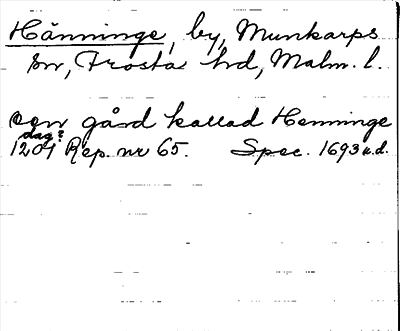 Hänninge, by, Munkarps
sn, Frosta hd, Malm. l.
een gård kallad Henninge
dag?
1201 Rep. nr 65. Spec. 1693 u.d.